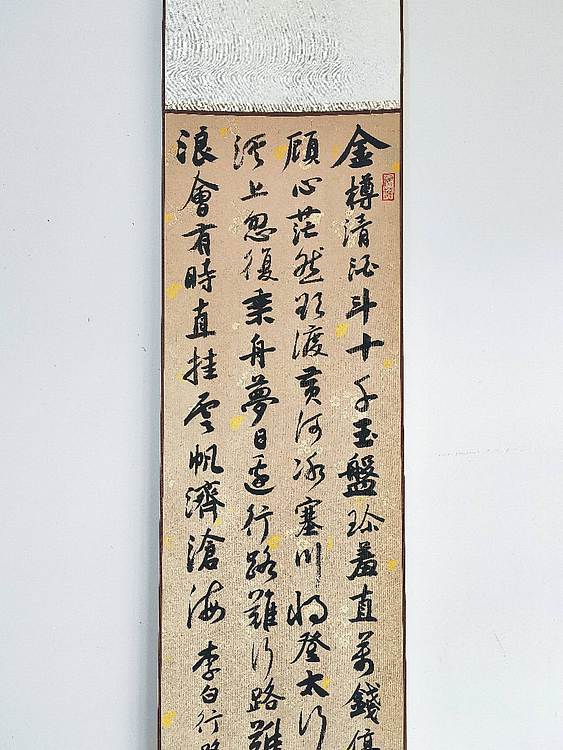 金樽清酒斗十千玉盤珍羞直萬錢停
顧心茫然欲渡黃河冰塞川將登太行
溪上忽復乘舟夢日邊行路難行路難
浪會有時直挂雲帆濟滄海 李白行路